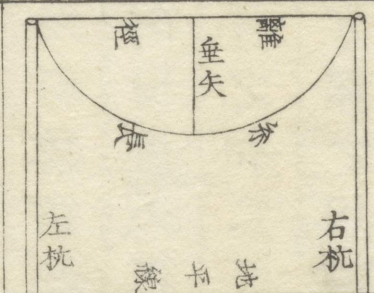 離徑
垂矢
糸長
右杭
左杭
地平線